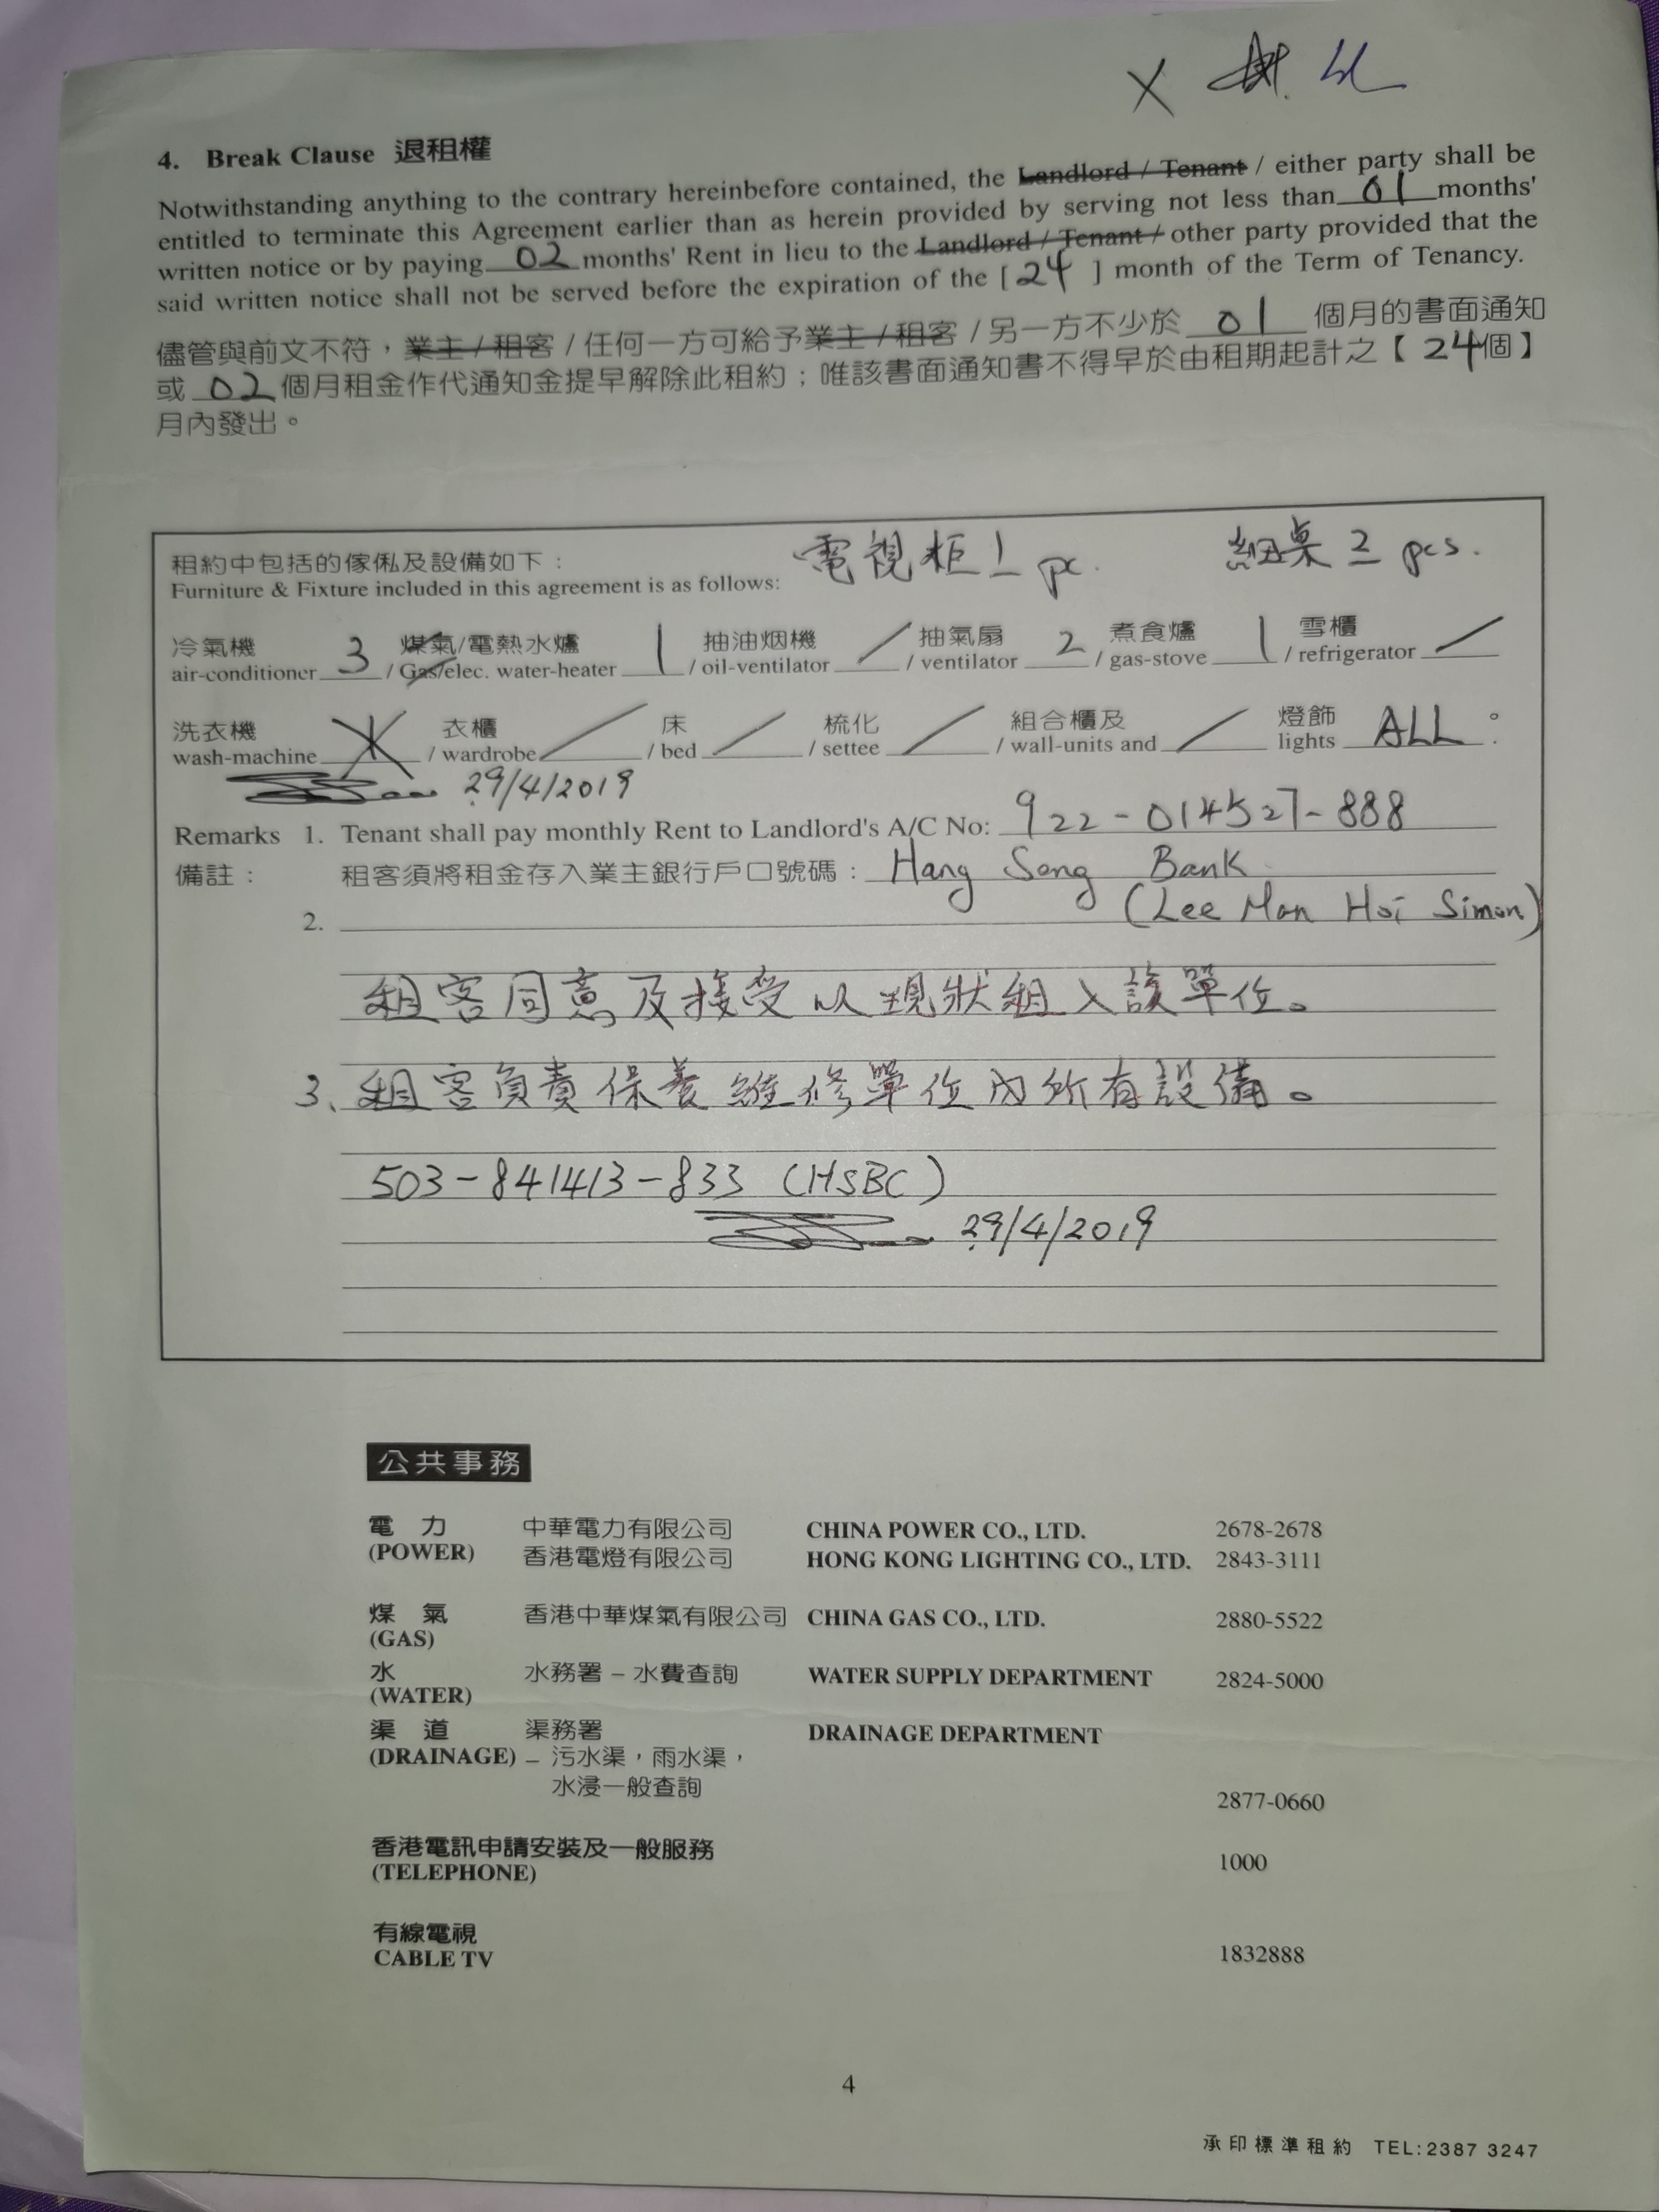 4. Break Clause 退租權
Notwithstanding anything to the contrary hereinbefore contained, the Landlord / Tenant / either party shall be
entitled to terminate this Agreement earlier than as herein provided by serving not less than 01 months'
written notice or by paying 02 months' Rent in lieu to the Landlord / Tenant / other party provided that the
said written notice shall not be served before the expiration of the [ 24 ] month of the Term of Tenancy.
儘管與前文不符，業主 / 租客 / 任何一方可給予業主 / 租客 / 另一方不少於 01 個月的書面通知
或 02 個月租金作代通知金提早解除此租約；唯該書面通知書不得早於由租期起計之【 24個】
月內發出。
租約中包括的傢俬及設備如下： 電視柜 1 pc. 細桌 2 pcs.
Furniture & Fixture included in this agreement is as follows:
冷氣機 煤氣/電熱水爐 抽油烟機 抽氣扇 煮食爐 雪櫃
air-conditioner 3 / Gas/elec. water-heater 1 / oil-ventilator / / ventilator 2 / gas-stove 1 / refrigerator /
洗衣機 衣櫃 床 梳化 組合櫃及 燈飾
wash-machine X / wardrobe / / bed / / settee / / wall-units and / lights ALL 。
29/4/2019
Remarks 1. Tenant shall pay monthly Rent to Landlord's A/C No: 922-014527-888
備註： 租客須將租金存入業主銀行戶口號碼： Hang Seng Bank
2. (Lee Man Hoi Simon)
租客同意及接受以現狀租入該單位。
3、租客負責保養維修單位內所有設備。
503-841413-833 (HSBC)
29/4/2019
公共事務
電 力 中華電力有限公司 CHINA POWER CO., LTD. 2678-2678
(POWER) 香港電燈有限公司 HONG KONG LIGHTING CO., LTD. 2843-3111
煤 氣 香港中華煤氣有限公司 CHINA GAS CO., LTD. 2880-5522
(GAS)
水 水務署 – 水費查詢 WATER SUPPLY DEPARTMENT 2824-5000
(WATER)
渠 道 渠務署 DRAINAGE DEPARTMENT
(DRAINAGE) – 污水渠，雨水渠，
水浸一般查詢 2877-0660
香港電訊申請安裝及一般服務
(TELEPHONE) 1000
有線電視
CABLE TV 1832888
4
承印標準租約 TEL:2387 3247